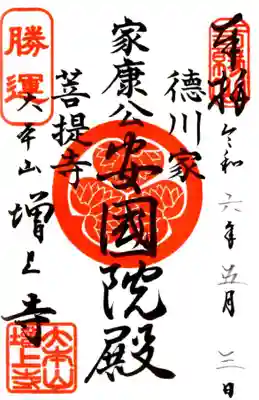 奉拝
令和六年五月三日
徳川家
菩提寺
家康公
安國院殿
勝運
大本山
増上寺
大本山
増上寺